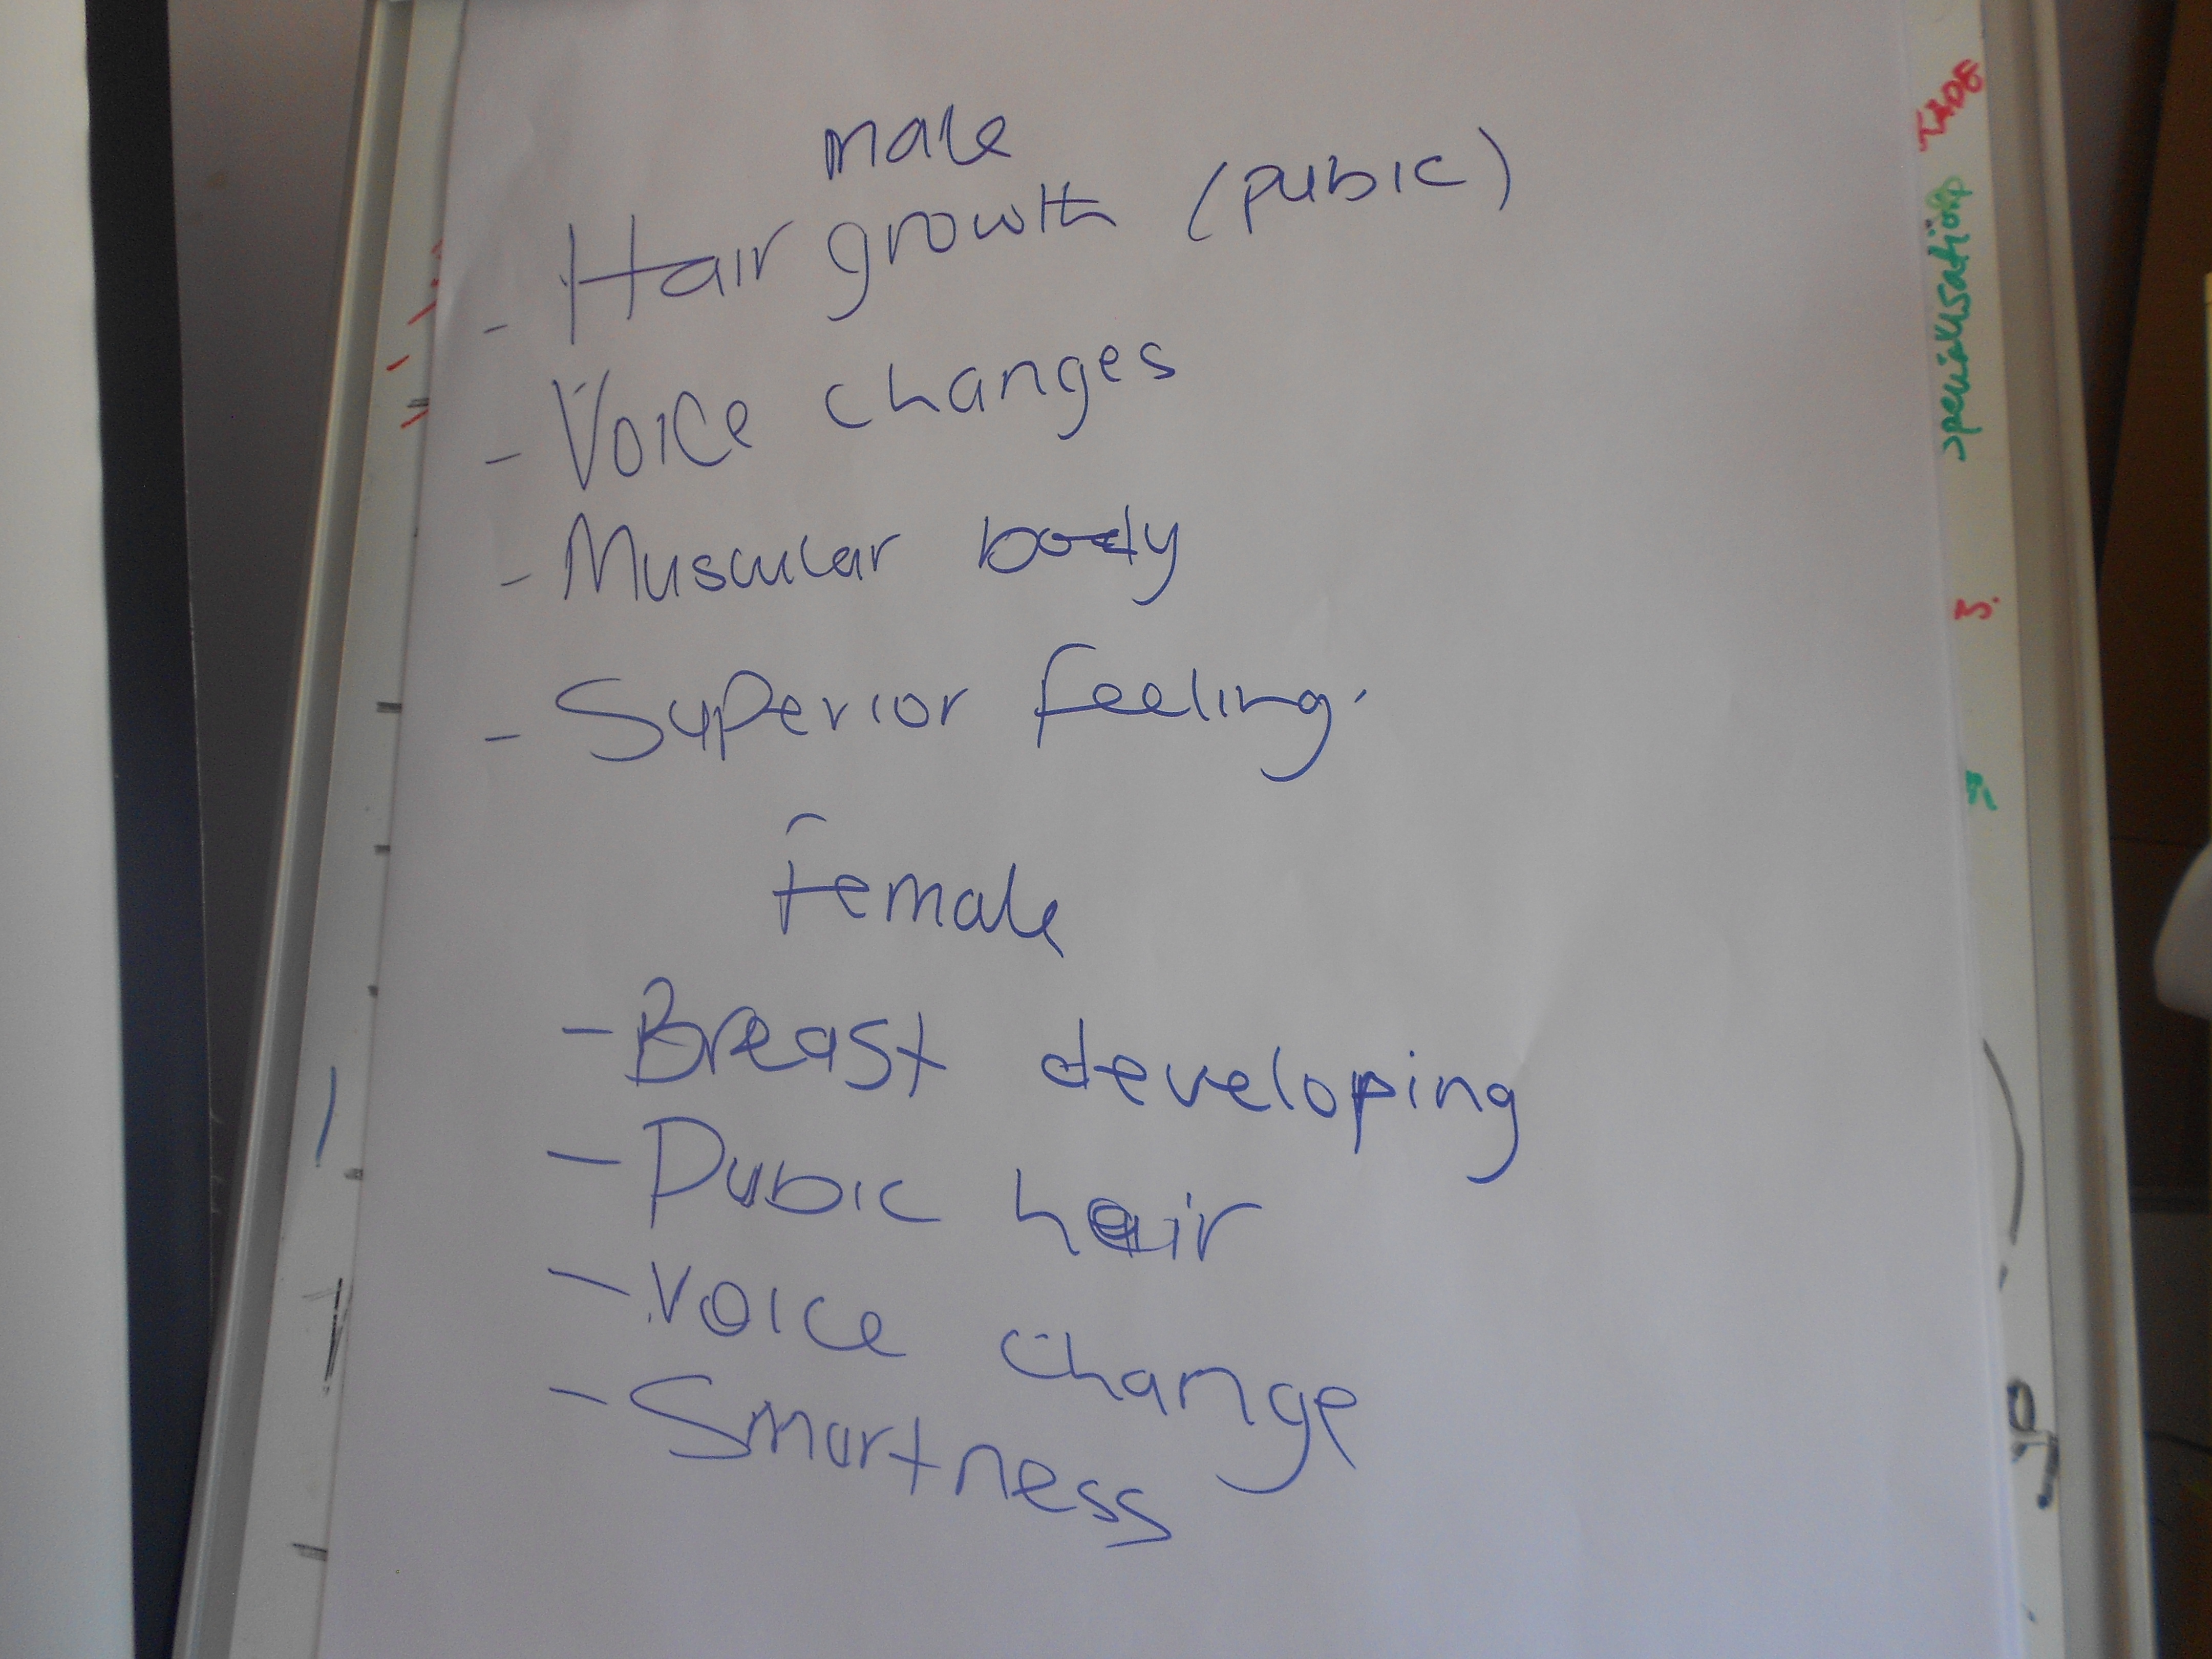 male
- Hair growth (pubic)
- Voice changes
- Muscular body
- Superior feeling.
Female
- Breast developing
- Pubic hair
- Voice change
- Smartness
TADE
specialisation
3.